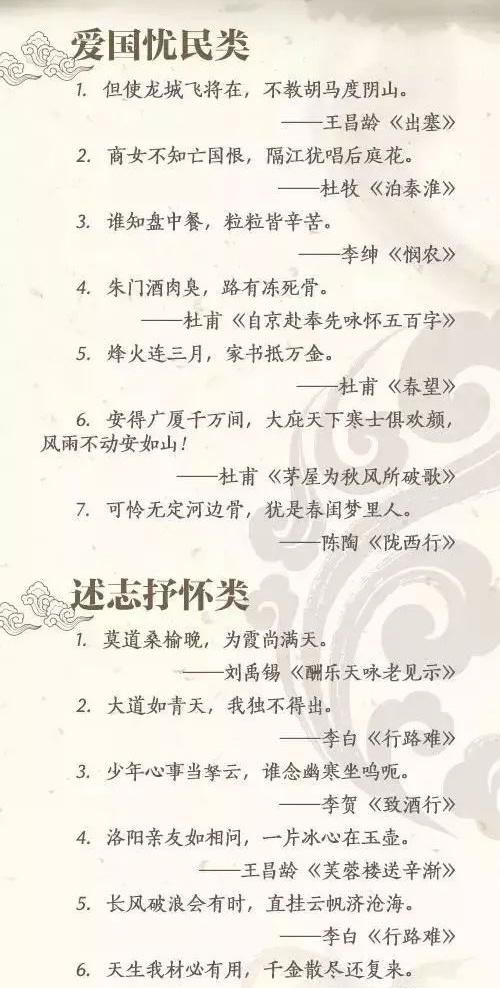 爱国忧民类
1. 但使龙城飞将在，不教胡马度阴山。
——王昌龄《出塞》
2. 商女不知亡国恨，隔江犹唱后庭花。
——杜牧《泊秦淮》
3. 谁知盘中餐，粒粒皆辛苦。
——李绅《悯农》
4. 朱门酒肉臭，路有冻死骨。
——杜甫《自京赴奉先咏怀五百字》
5. 烽火连三月，家书抵万金。
——杜甫《春望》
6. 安得广厦千万间，大庇天下寒士俱欢颜，
风雨不动安如山！
——杜甫《茅屋为秋风所破歌》
7. 可怜无定河边骨，犹是春闺梦里人。
——陈陶《陇西行》
述志抒怀类
1. 莫道桑榆晚，为霞尚满天。
——刘禹锡《酬乐天咏老见示》
2. 大道如青天，我独不得出。
——李白《行路难》
3. 少年心事当拏云，谁念幽寒坐呜呃。
——李贺《致酒行》
4. 洛阳亲友如相问，一片冰心在玉壶。
——王昌龄《芙蓉楼送辛渐》
5. 长风破浪会有时，直挂云帆济沧海。
——李白《行路难》
6. 天生我材必有用，千金散尽还复来。